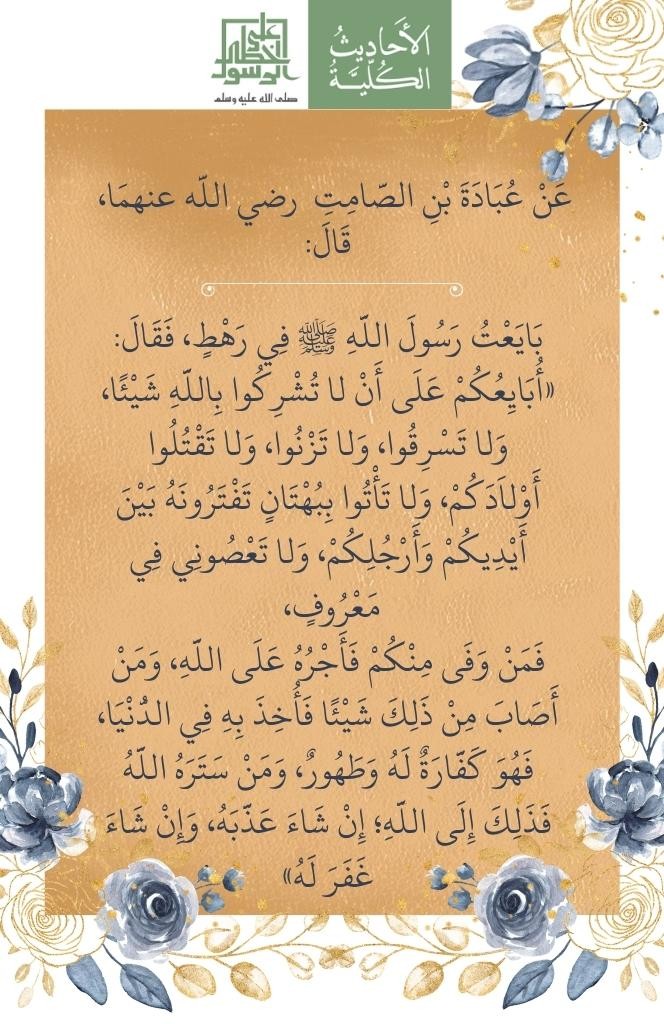 على خطى الرسول
صلى الله عليه وسلم
الأَحَادِيثُ
الكُلِّيَّةُ
عَنْ عُبَادَةَ بْنِ الصّامِتِ رضي اللّه عنهمَا،
قَالَ:
بَايَعْتُ رَسُولَ اللّهِ ﷺ فِي رَهْطٍ، فَقَالَ:
«أُبَايِعُكُمْ عَلَى أَنْ لا تُشْرِكُوا بِاللّهِ شَيْئًا،
وَلا تَسْرِقُوا، وَلا تَزْنُوا، وَلا تَقْتُلُوا
أَوْلاَدَكُمْ، وَلا تَأْتُوا بِبُهْتَانٍ تَفْتَرُونَهُ بَيْنَ
أَيْدِيكُمْ وَأَرْجُلِكُمْ، وَلا تَعْصُونِي فِي
مَعْرُوفٍ،
فَمَنْ وَفَى مِنْكُمْ فَأَجْرُهُ عَلَى اللّهِ، وَمَنْ
أَصَابَ مِنْ ذَلِكَ شَيْئًا فَأُخِذَ بِهِ فِي الدُّنْيَا،
فَهُوَ كَفّارَةٌ لَهُ وَطَهُورٌ، وَمَنْ سَتَرَهُ اللّهُ
فَذَلِكَ إِلَى اللّهِ؛ إِنْ شَاءَ عَذّبَهُ، وَإِنْ شَاءَ
غَفَرَ لَهُ»